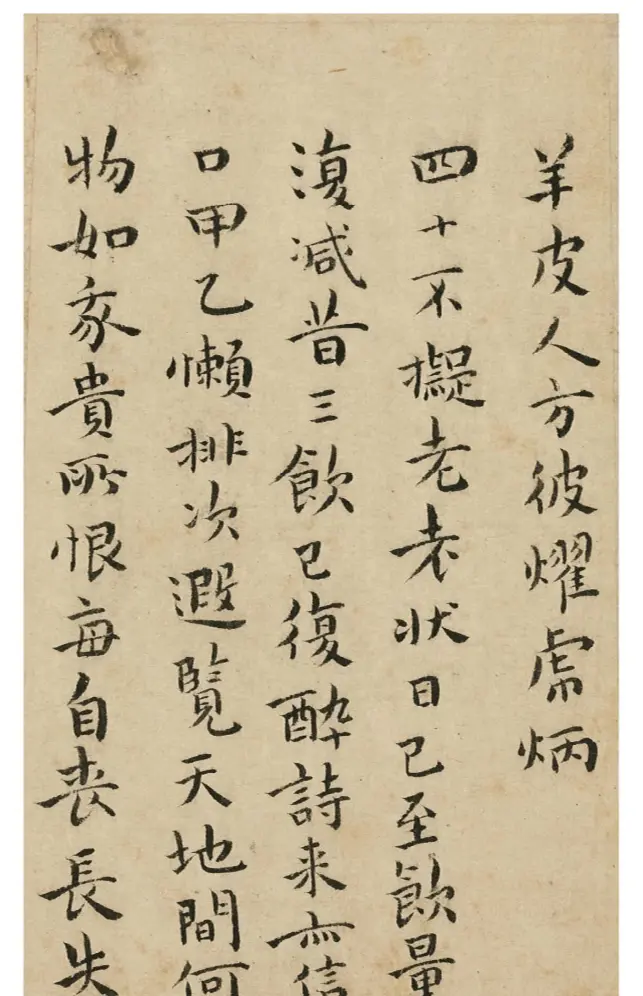 羊皮人方彼燿虎炳
四十不擬老老状日已至飲量
復減昔三飲已復醉詩来亦信
口甲乙懶排次遐覽天地間何
物如家貴所恨每自丧長失